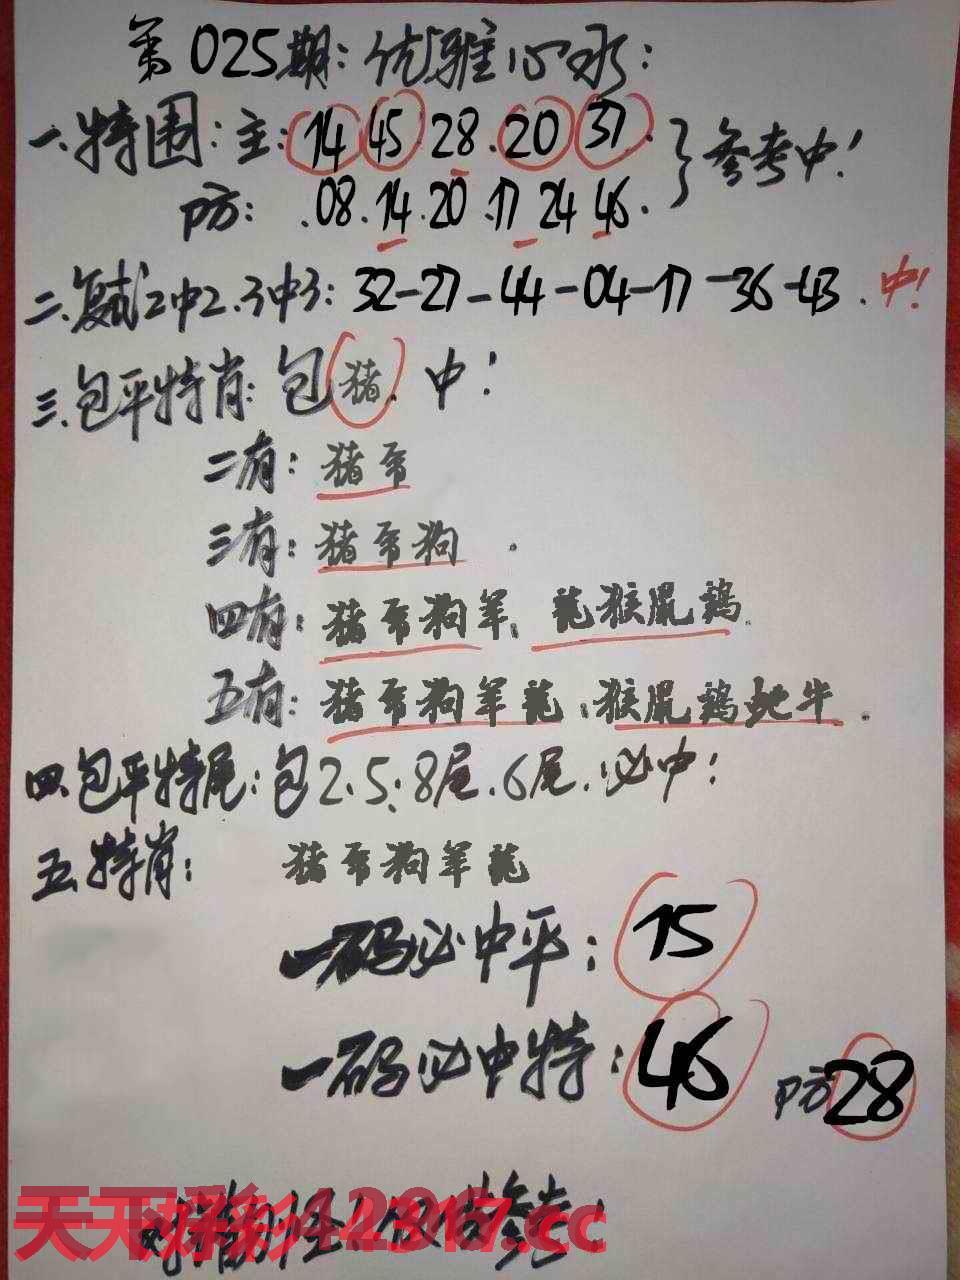 第025期:优雅心水:
一.特围:主:14 45.28.20 37.}参考中!
防:.08.14.20.17 24 46.
二.复式2中2.3中3:32-27-44-04-17-36-43.中!
三.包平特肖:包猪.中!
二有:猪帝
三有:猪帝狗.
四有:猪帝狗羊、龍猴鼠鶏.
五有:猪帝狗羊龍;猴鼠鶏蛇牛.
四.包平特尾:包2.5:8尾.6尾.必中!
五.特肖:猪帝狗羊龍
一码必中平:15
一码必中特:46 防28
天下彩
.cc